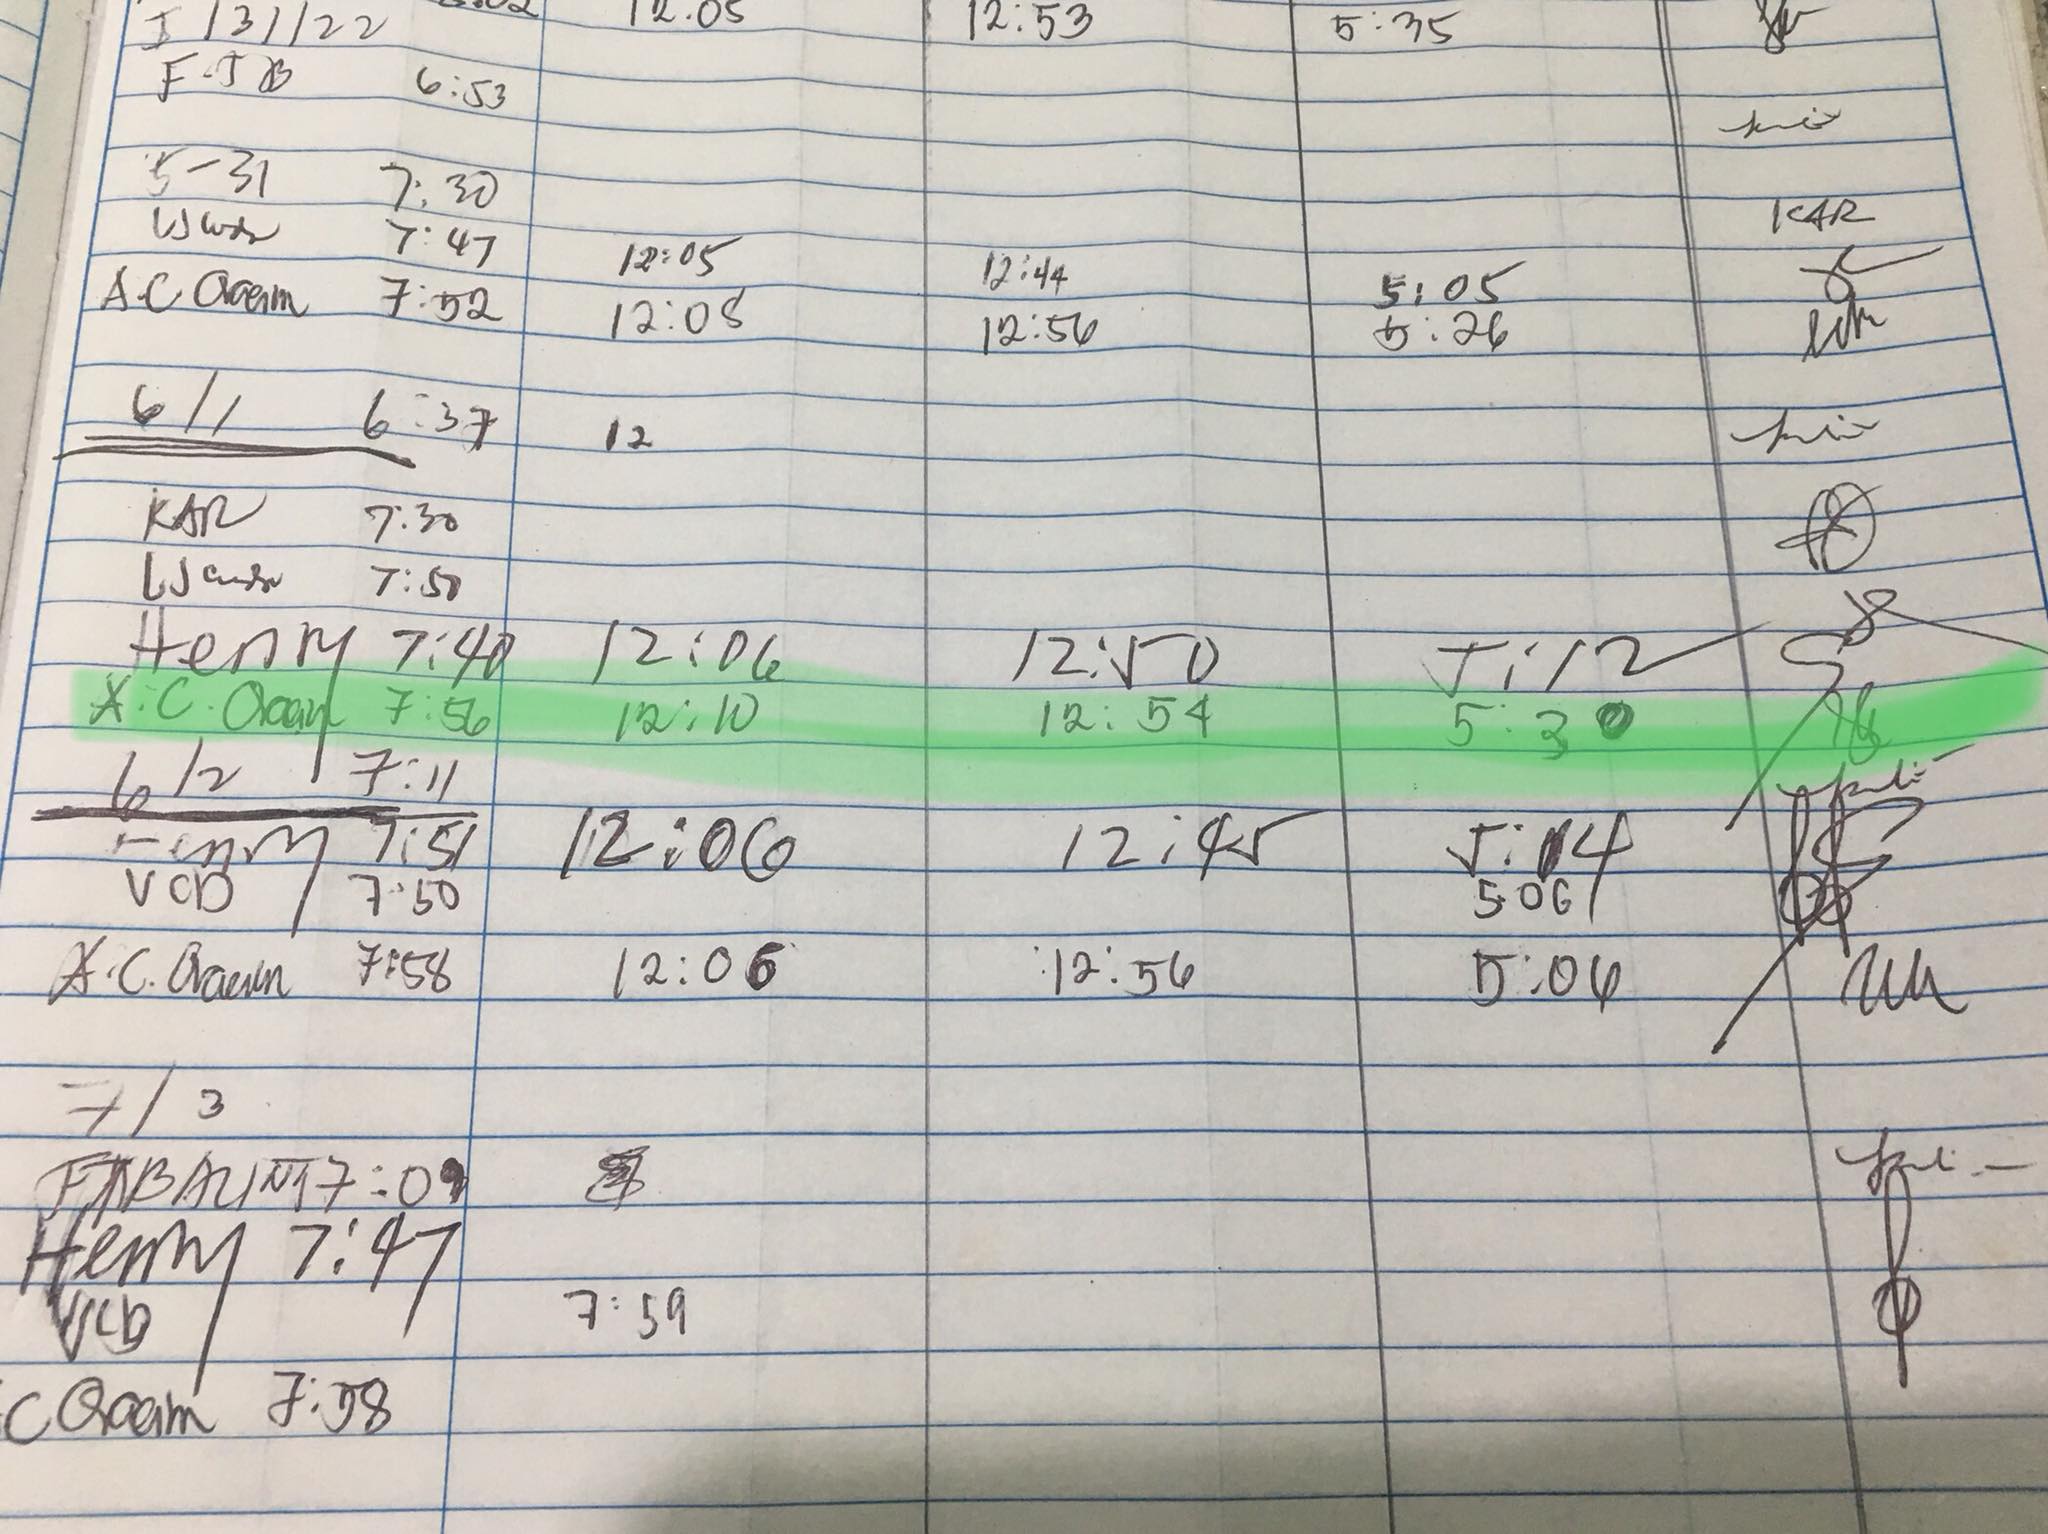 5/31/22 12:05 12:53 5:35
F.J.B 6:53
5-31 7:30 KAR
LJ 7:47 12:05 12:44 5:05
A.C 7:52 12:08 12:56 5:26
6/1 6:37 12
KAR 7:30
LJ 7:50
Henry 7:40 12:06 12:50 5:12
A.C. 7:56 12:10 12:54 5:30
6/2 7:11
Henry 7:51 12:06 12:45 5:14
VCD 7:50 5:06
A.C. 7:58 12:06 12:56 5:06
7/3
7:09
Henry 7:47
VCD 7:59
C 7:58